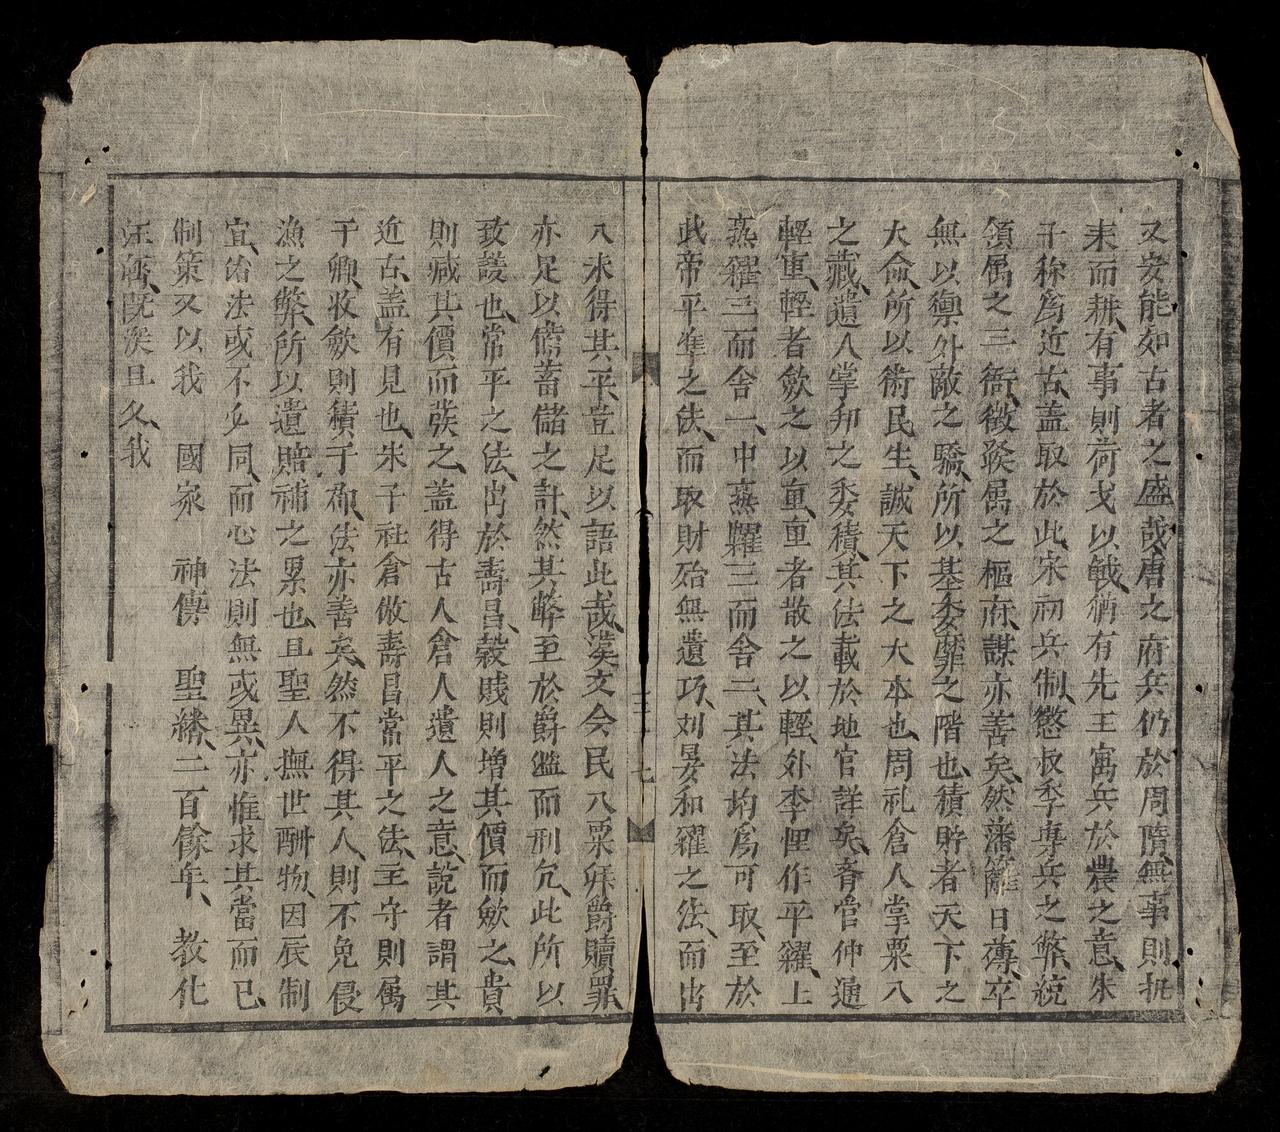 又安能如古者之盛哉唐之府兵仍於周隋無事則抚
耒而耕有事則荷戈以戰猶有先王寓兵於農之意朱
子称為近古盖取於此宋初兵制懲叔季専兵之弊統
領属之三衙徵發属之樞府謀亦善矣然藩籬日薄卒
無以禦外敵之驕所以基委靡之階也積貯者天下之
大命所以術民生誠天下之大本也周礼倉人掌粟入
之藏遺人掌邦之委積其法載於地官詳矣斉管仲通
輕重輕者歛之以重重者散之以輕外李悝作平糴上
熟糴三而舍一中熟糴三而舍二其法均為可取至於
武帝平準之法而取財殆無遺巧刘晏和糴之法而出
入未得其平豈足以語此哉漢文令民入粟拜爵贖罪
亦足以俻蓄儲之計然其弊至於爵濫而刑冗此所以
致譏也常平之法出於壽昌穀賎則增其價而歛之貴
則减其價而發之盖得古人倉人遺人之意説者謂其
近古盖有見也朱子社倉倣壽昌常平之法主守則属
于鄉收歛則積于鄉法亦善矣然不得其人則不免侵
漁之弊所以遺賠補之累也且聖人撫世酬物因辰制
宜治法或不必同而心法則無或異亦惟求其當而已
制策又以我　國家　神傳　聖繼二百餘年教化
汪濊既深且久我
三 七